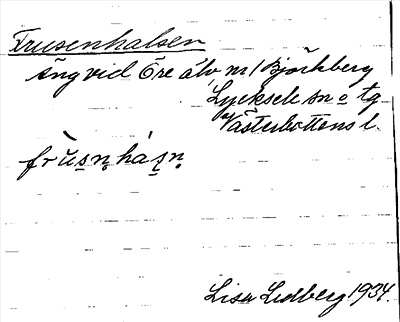 Frusenhalsen
äng vid Öre älv, m/ Björkberg
Lycksele sn o tg
Västerbottens l.
frùs̱n̥há s̱n̥
Lisa Lidberg 1934.